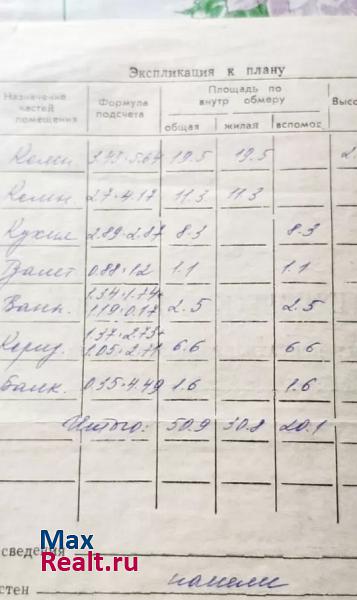 Экспликация к плану
Назначение частей помещения Формула подсчета Площадь по внутр обмеру Высо
общая жилая вспомог.
Комн. 3.43·5.64 19.5 19.5 2.
Комн. 2.7·4.17 11.3 11.3
Кухня 2.89·2.87 8.3 8.3
Туалет 0.88·1.2 1.1 1.1
Ванн. 1.34·1.74+
1.19·0.17 2.5 2.5
Корид. 1.37·2.73+
1.05·2.71 6.6 6.6
Балк. 0.35·4.49 1.6 1.6
Итого: 50.9 30.8 20.1
сведения
стен панели
Max
Realt.ru